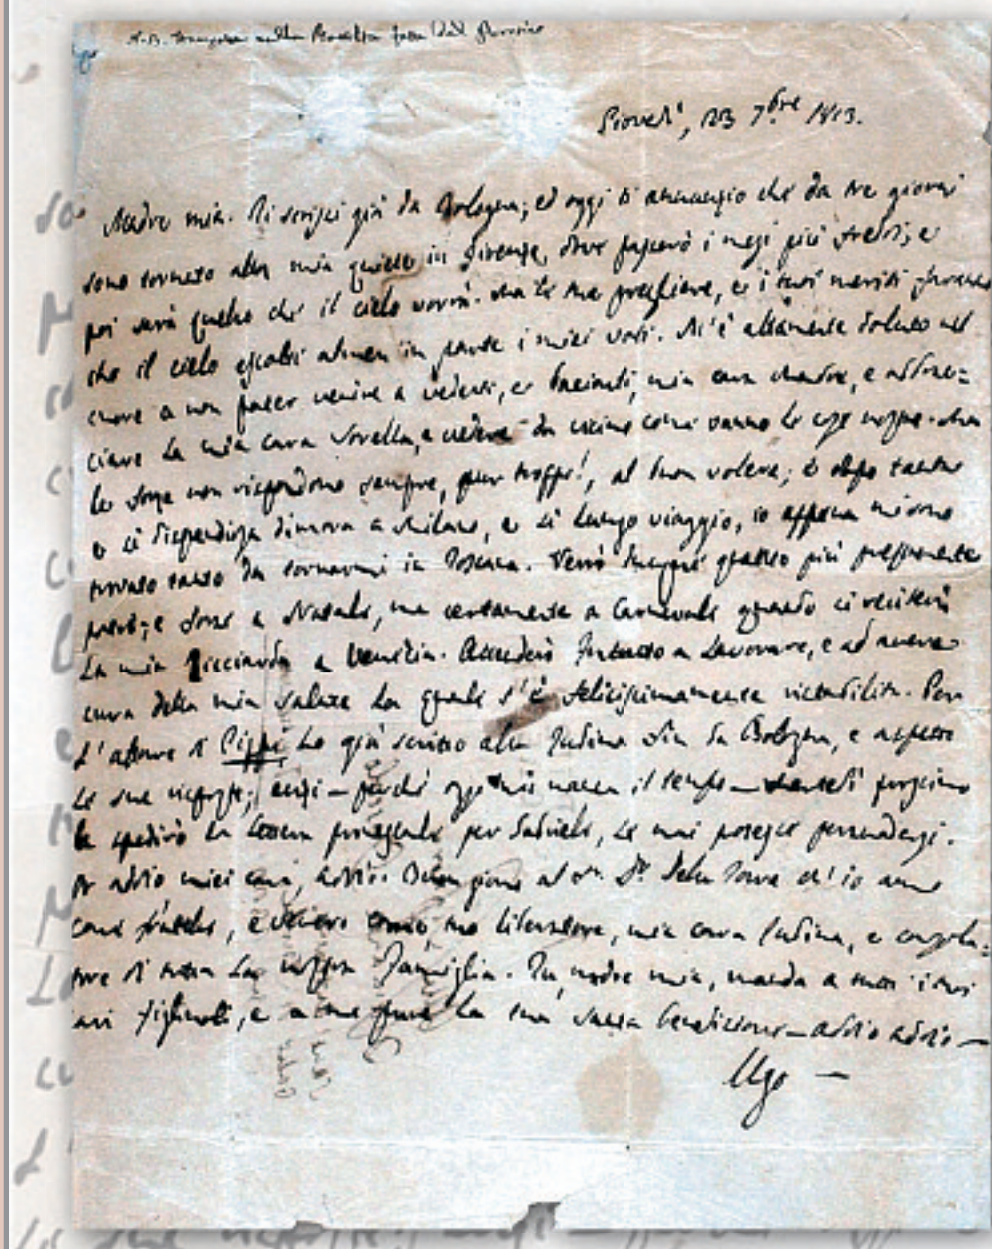 Giovedì, 23 7bre 1813.
Madre mia. Ti scrissi già da Bologna; ed oggi ti annunzio che da tre giorni
sono tornato alla mia quiete in Firenze, dove passerò i mesi più freddi; e
poi sarà quello che il cielo vorrà. Ma le tue preghiere, e i tuoi meriti faranno
che il cielo ascolti almen in parte i miei voti. M'è altamente doluto nel
cuore a non poter venire a vederti, e baciarti, mia cara Madre, e abbrac=
ciare la mia cara Sorella, e vedere da vicino come vanno le cose nostre. Ma
le forze non rispondono sempre, pur troppo!, al buon volere; e dopo tanta
e sì dispendiosa dimora a Milano, e sì lungo viaggio, io appena mi sono
trovato tanto da tornarmi in Toscana. Verrò dunque quanto più prestamente
potrò; e forse a Natale, ma certamente a Carnevale quando si reciterà
La mia Ricciarda a Venezia. Attenderò frattanto a lavorare, e ad avere
cura della mia salute la quale s'è felicissimamente ristabilita. Per
l'affare di Pippi ho già scritto alla Rubina sin da Bologna, e aspetto
le sue risposte; anzi — perchè oggi mi manca il tempo — martedì prossimo
le spedirò la lettera per
Or addio miei cari, addio. al Sr. Dr. Della Torre ch'io amo
come fratello, e come tuo liberatore, mia cara Rubina, e consola=
tore di tutta la nostra famiglia. Tu, madre mia, manda a tutti i tuoi
cari figliuoli, e a me pure la tua santa benedizione — addio addio —
Ugo —